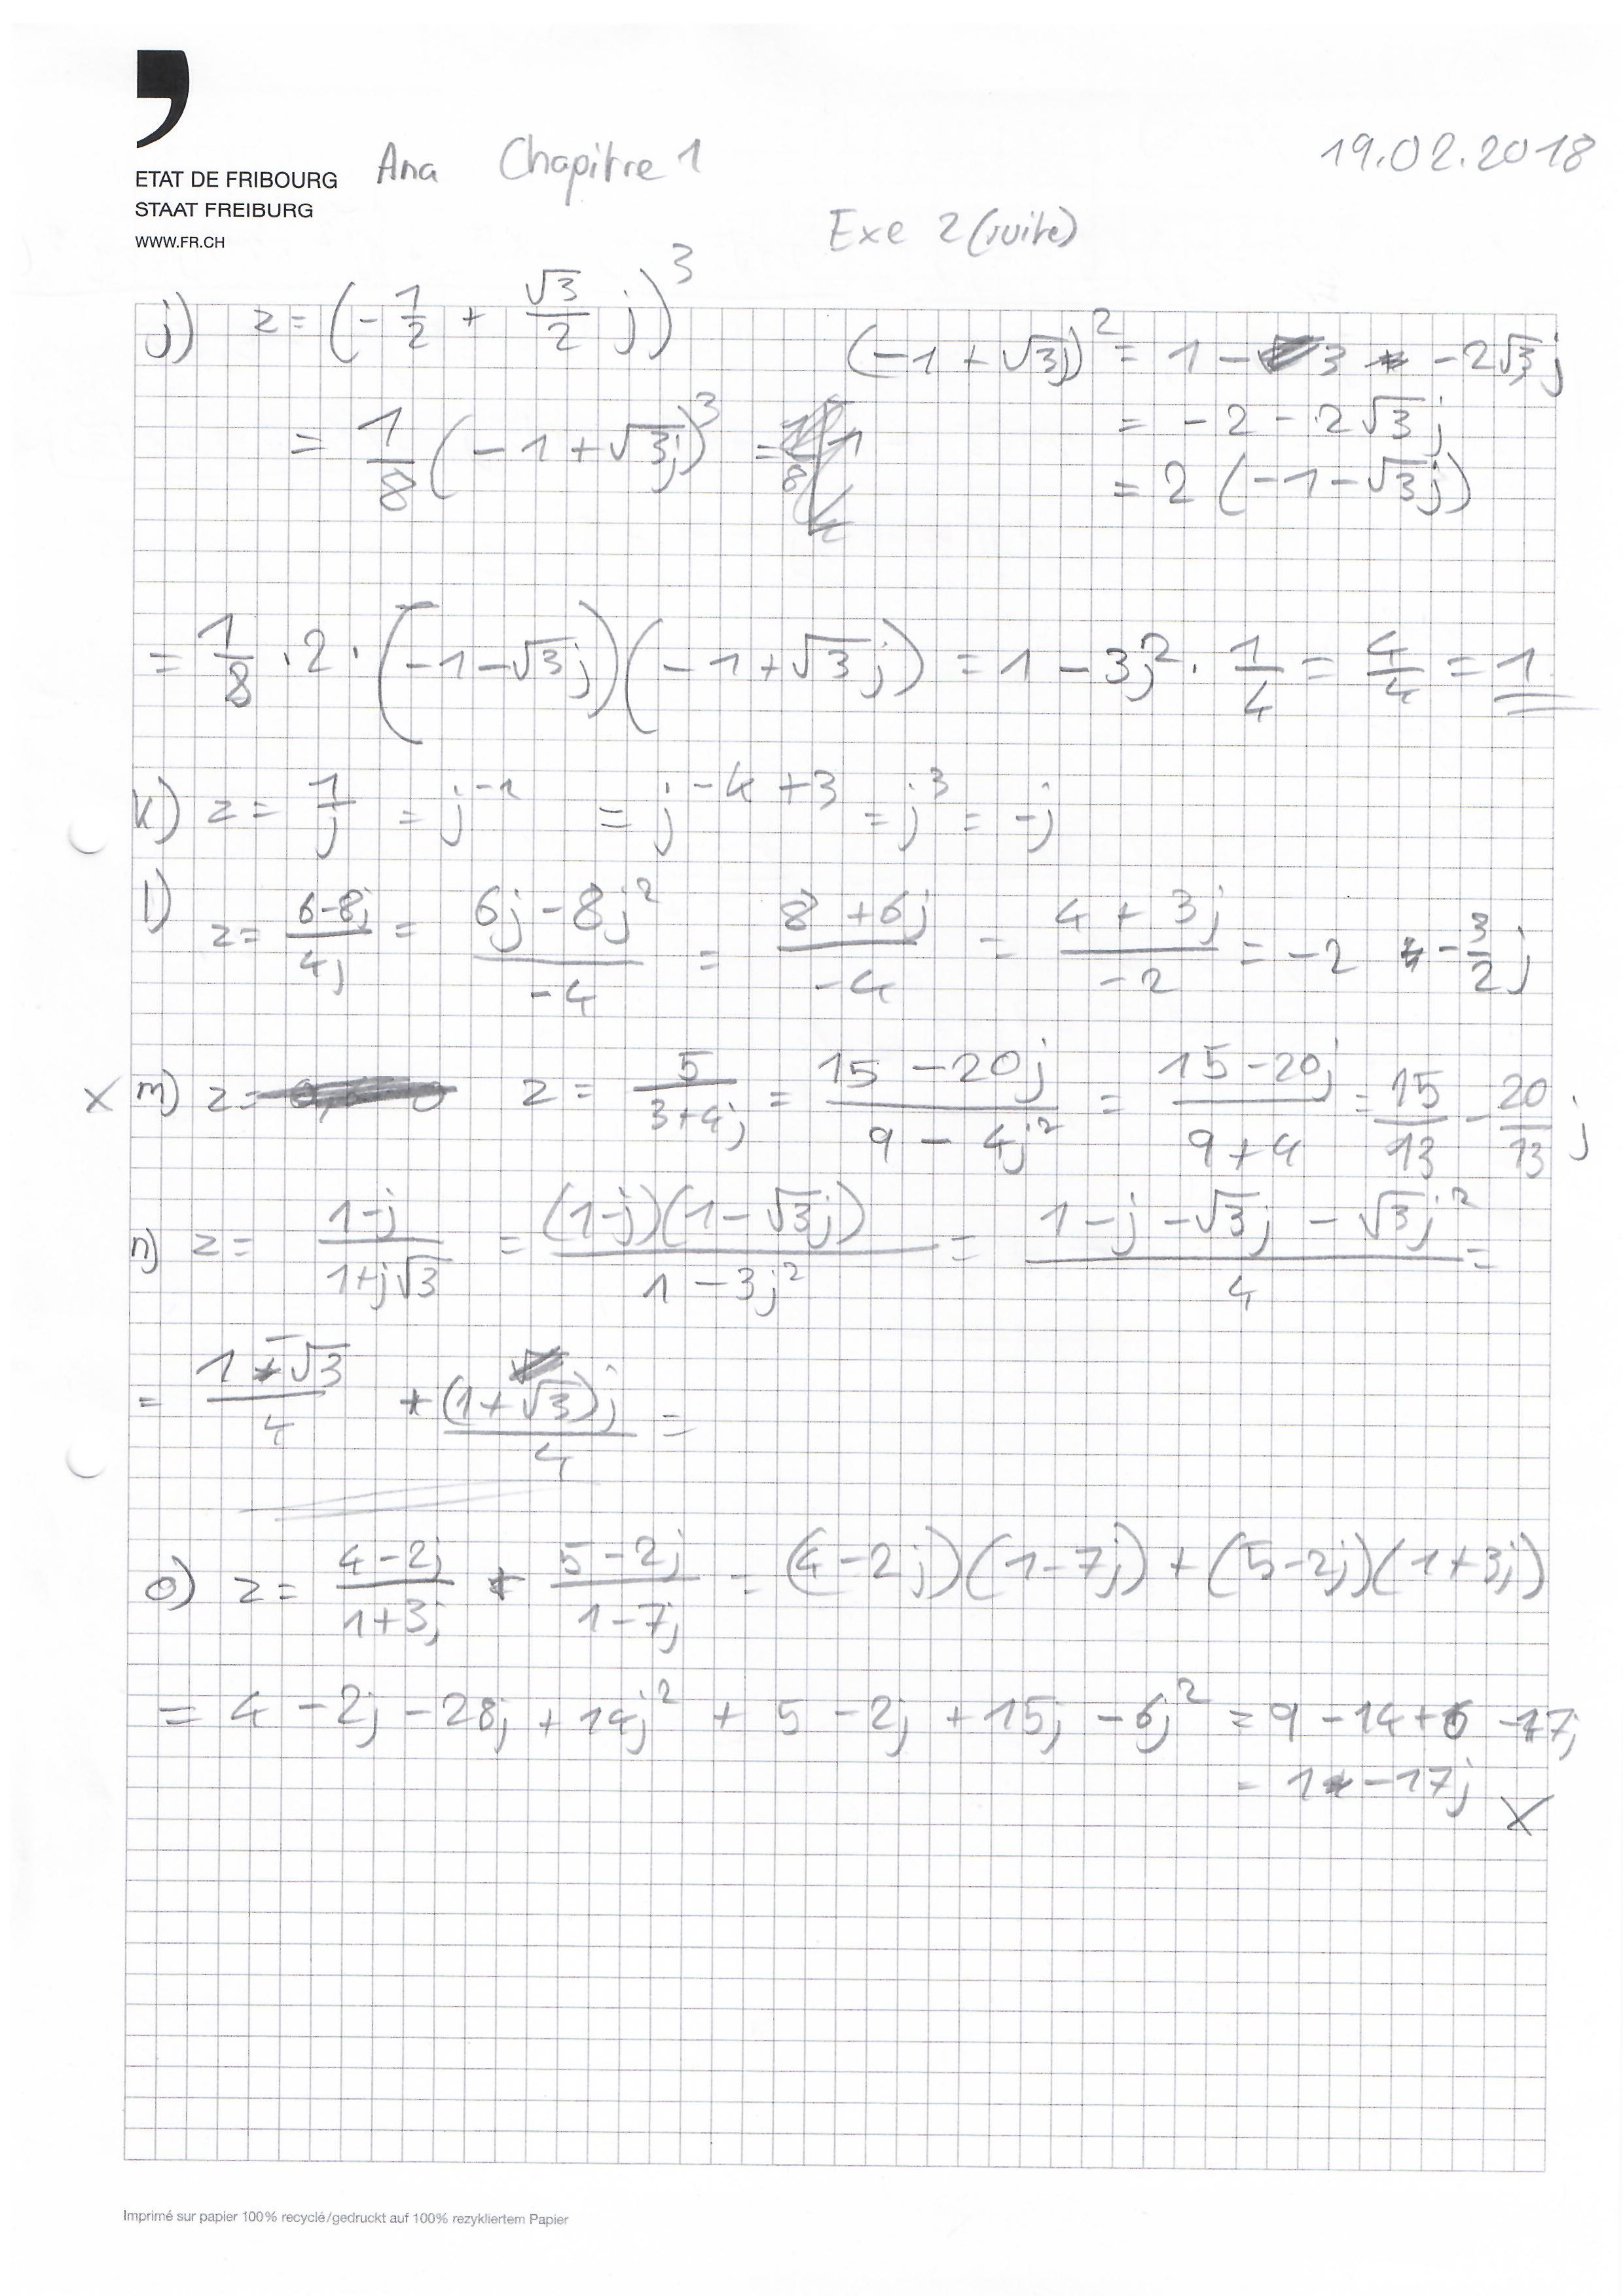 Ana Chapitre 1 19.02.2018
ETAT DE FRIBOURG
STAAT FREIBURG
WWW.FR.CH
Exe 2 (suite)
j) z = (-1/2 + √3/2 j)^3
(-1 + √3j)^2 = 1 - 3 - 2√3j
= 1/8 (-1 + √3j)^3 =
= -2 - 2√3j
= 2 (-1 - √3j)
= 1/8 · 2 · (-1 - √3j)(-1 + √3j) = 1 - 3j^2 · 1/4 = 4/4 = 1
k) z = 1/j = j^-1 = j^-4+3 = j^3 = -j
l) z = 6-8j/4j = 6j-8j^2/-4 = 8+6j/-4 = 4+3j/-2 = -2 - 3/2 j
x m) z = z = 5/3+4j = 15-20j/9-4j^2 = 15-20j/9+4 = 15/13 - 20/13 j
n) z = 1-j/1+j√3 = (1-j)(1-√3j)/1-3j^2 = 1-j-√3j-√3j^2/4 =
= 1-√3/4 + (1+√3)j/4 =
o) z = 4-2j/1+3j + 5-2j/1-7j = (4-2j)(1-7j) + (5-2j)(1+3j)
= 4 - 2j - 28j + 14j^2 + 5 - 2j + 15j - 6j^2 = 9 - 14 + 6 - 17j
= 1 - 17j x
Imprimé sur papier 100% recyclé/gedruckt auf 100% rezykliertem Papier